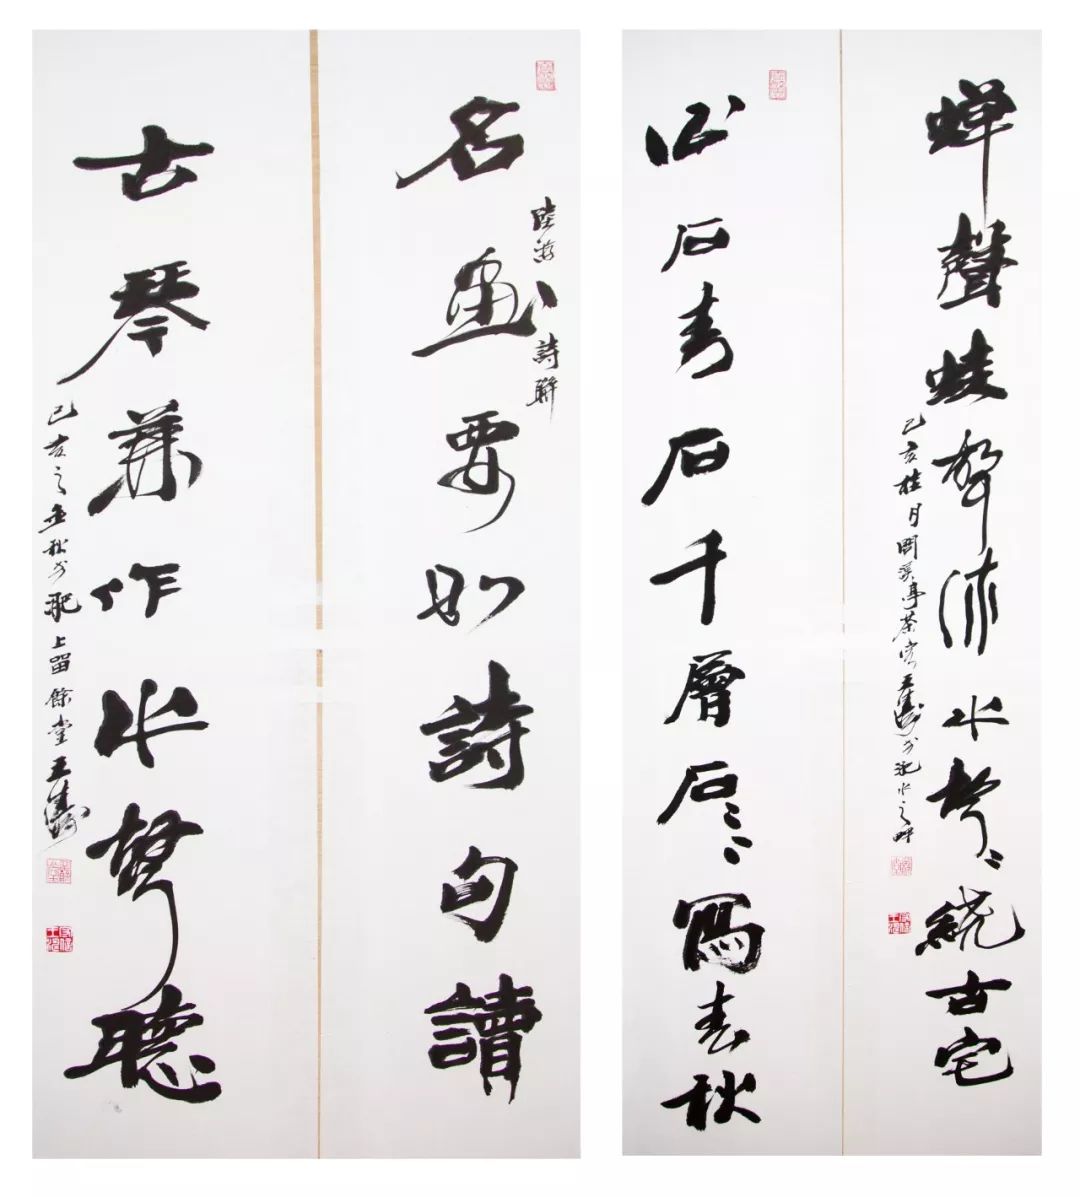 名畫要如詩句讀
陸游詩聯
古琴兼作水聲聽
己亥之金秋於肥上留餘堂王濤
蟬聲蛙聲流水聲聲聲繞古宅
己亥桂月溪亭茶客王濤於肥水之畔
山石青石千層石石石寫春秋